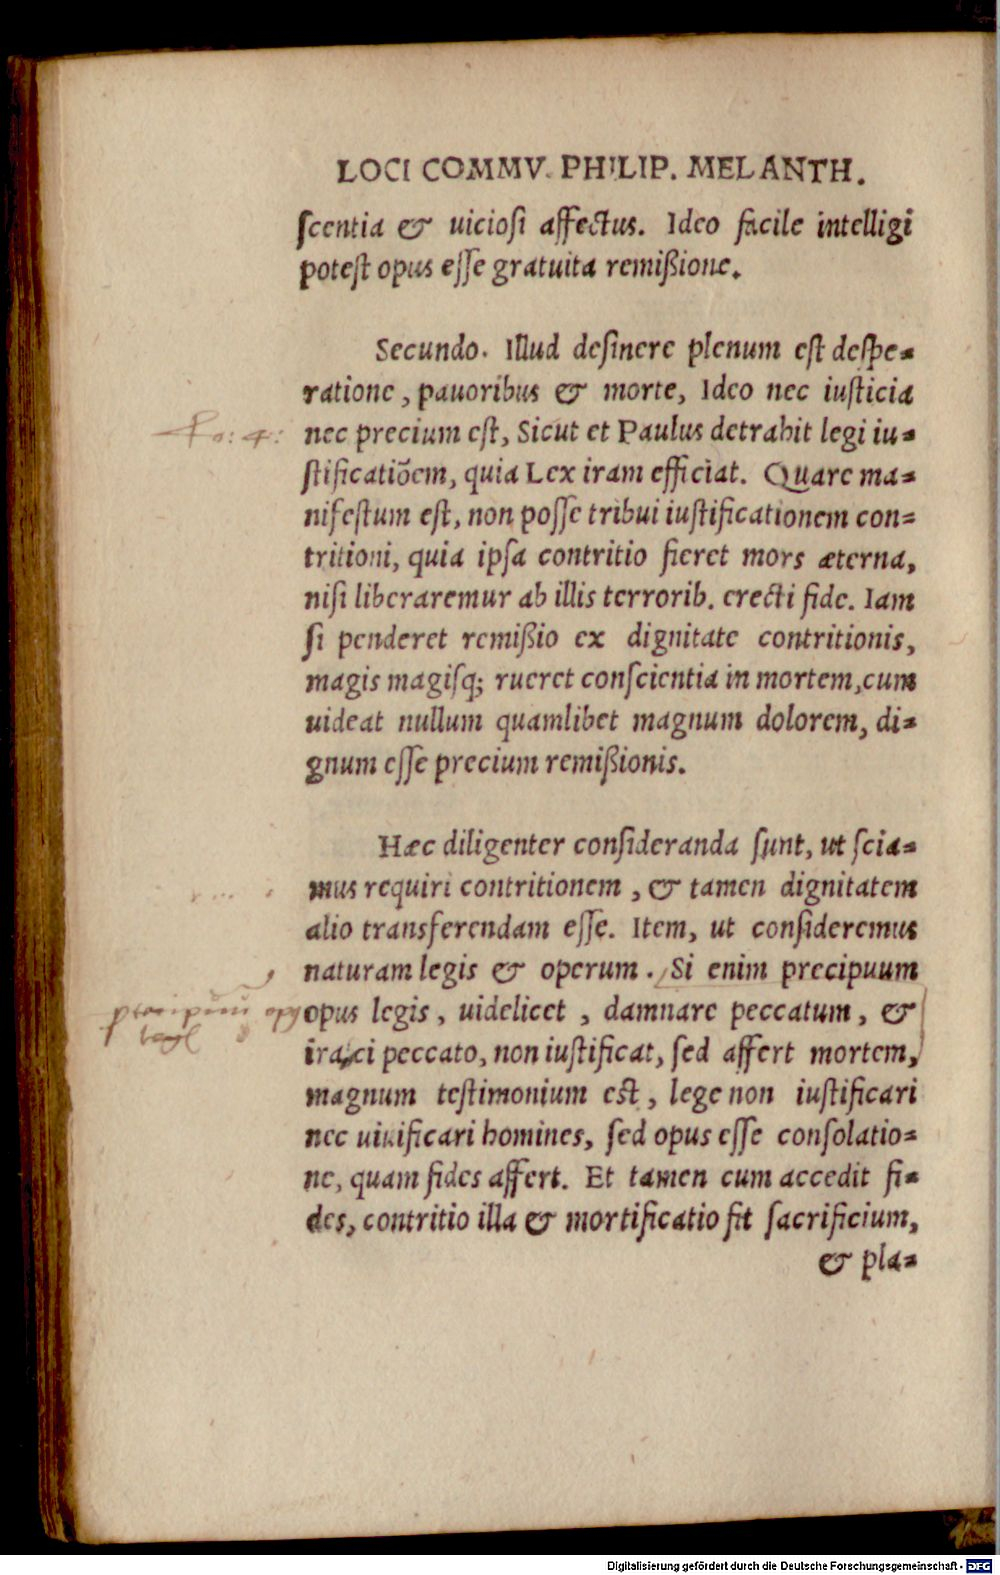 LOCI COMMV. PHILIP. MELANTH.
ſcentia & uicioſi affectus. Ideo facile intelligi
poteſt opus eſſe gratuita remißione.
Secundo. Illud deſinere plenum eſt deſpe-
ratione, pauoribus & morte, Ideo nec iuſticia
Ro: 4:
nec precium eſt, Sicut et Paulus detrahit legi iu-
ſtificatiõem, quia Lex iram efficiat. Quare ma-
nifeſtum eſt, non poſſe tribui iuſtificationem con-
tritioni, quia ipſa contritio fieret mors æterna,
niſi liberaremur ab illis terrorib. erecti fide. Iam
ſi penderet remißio ex dignitate contritionis,
magis magiſq; rueret conſcientia in mortem, cum
uideat nullum quamlibet magnum dolorem, di-
gnum eſſe precium remißionis.
Hæc diligenter conſideranda ſunt, ut ſcia-
mus requiri contritionem, & tamen dignitatem
alio transferendam eſſe. Item, ut conſideremus
naturam legis & operum. Si enim precipuum
precipuũ
opus legis, uidelicet, damnare peccatum, &
iraſci peccato, non iuſtificat, ſed affert mortem,
magnum teſtimonium eſt, lege non iuſtificari
nec uiuificari homines, ſed opus eſſe conſolatio-
ne, quam fides affert. Et tamen cum accedit fi-
des, contritio illa & mortificatio fit ſacrificium,
& pla-
Digitalisierung gefördert durch die Deutsche Forschungsgemeinschaft - DFG